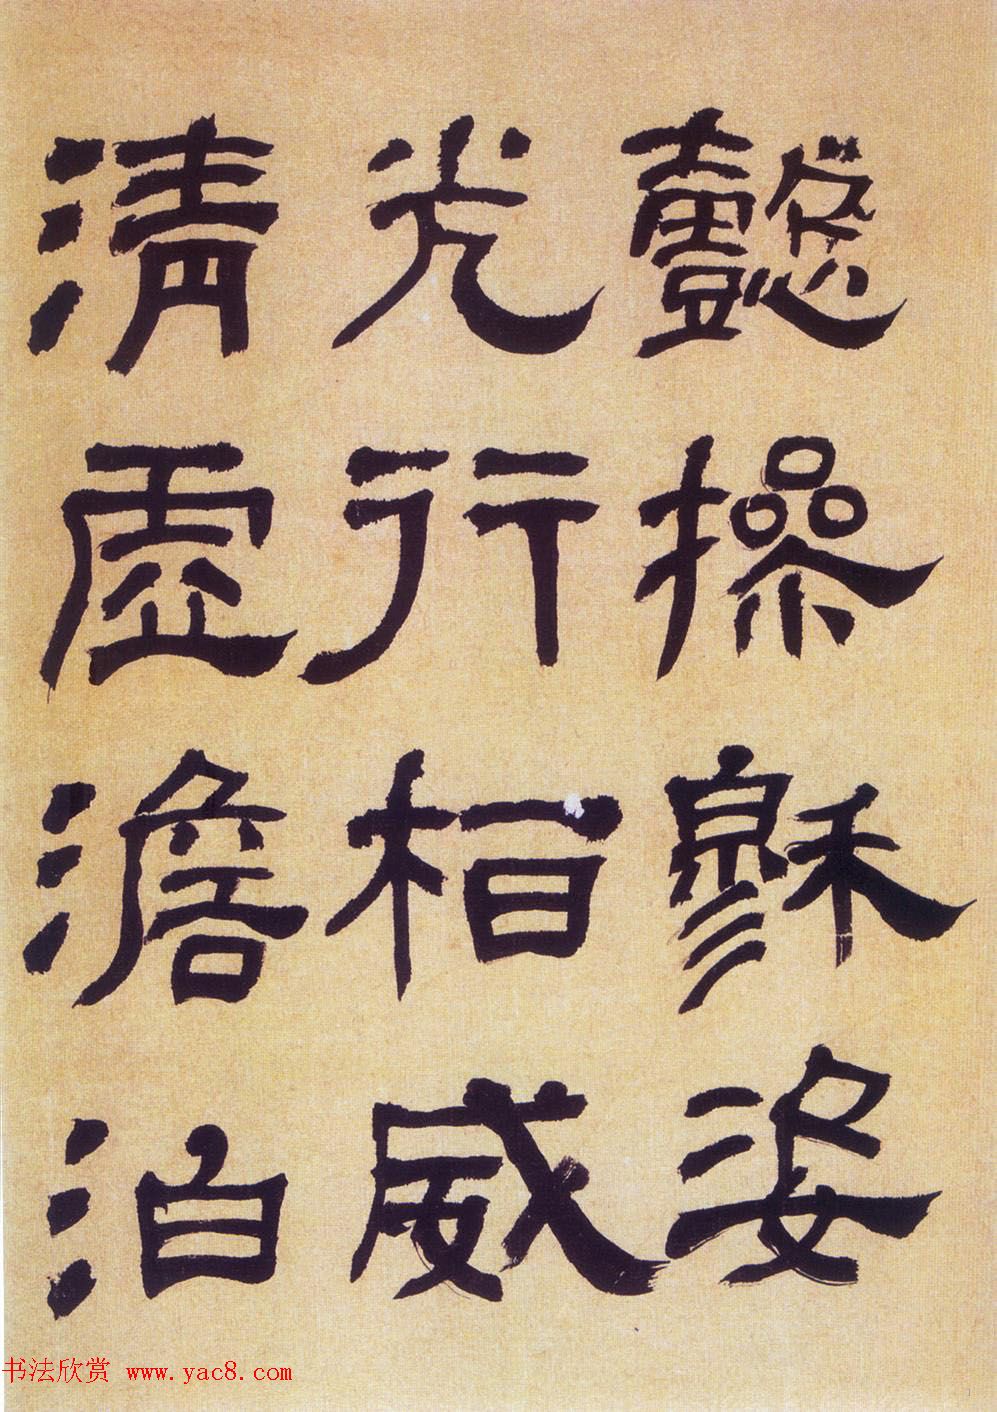 懿操穆姿
光行相威
清虚澹泊
书法欣赏 www.yac8.com